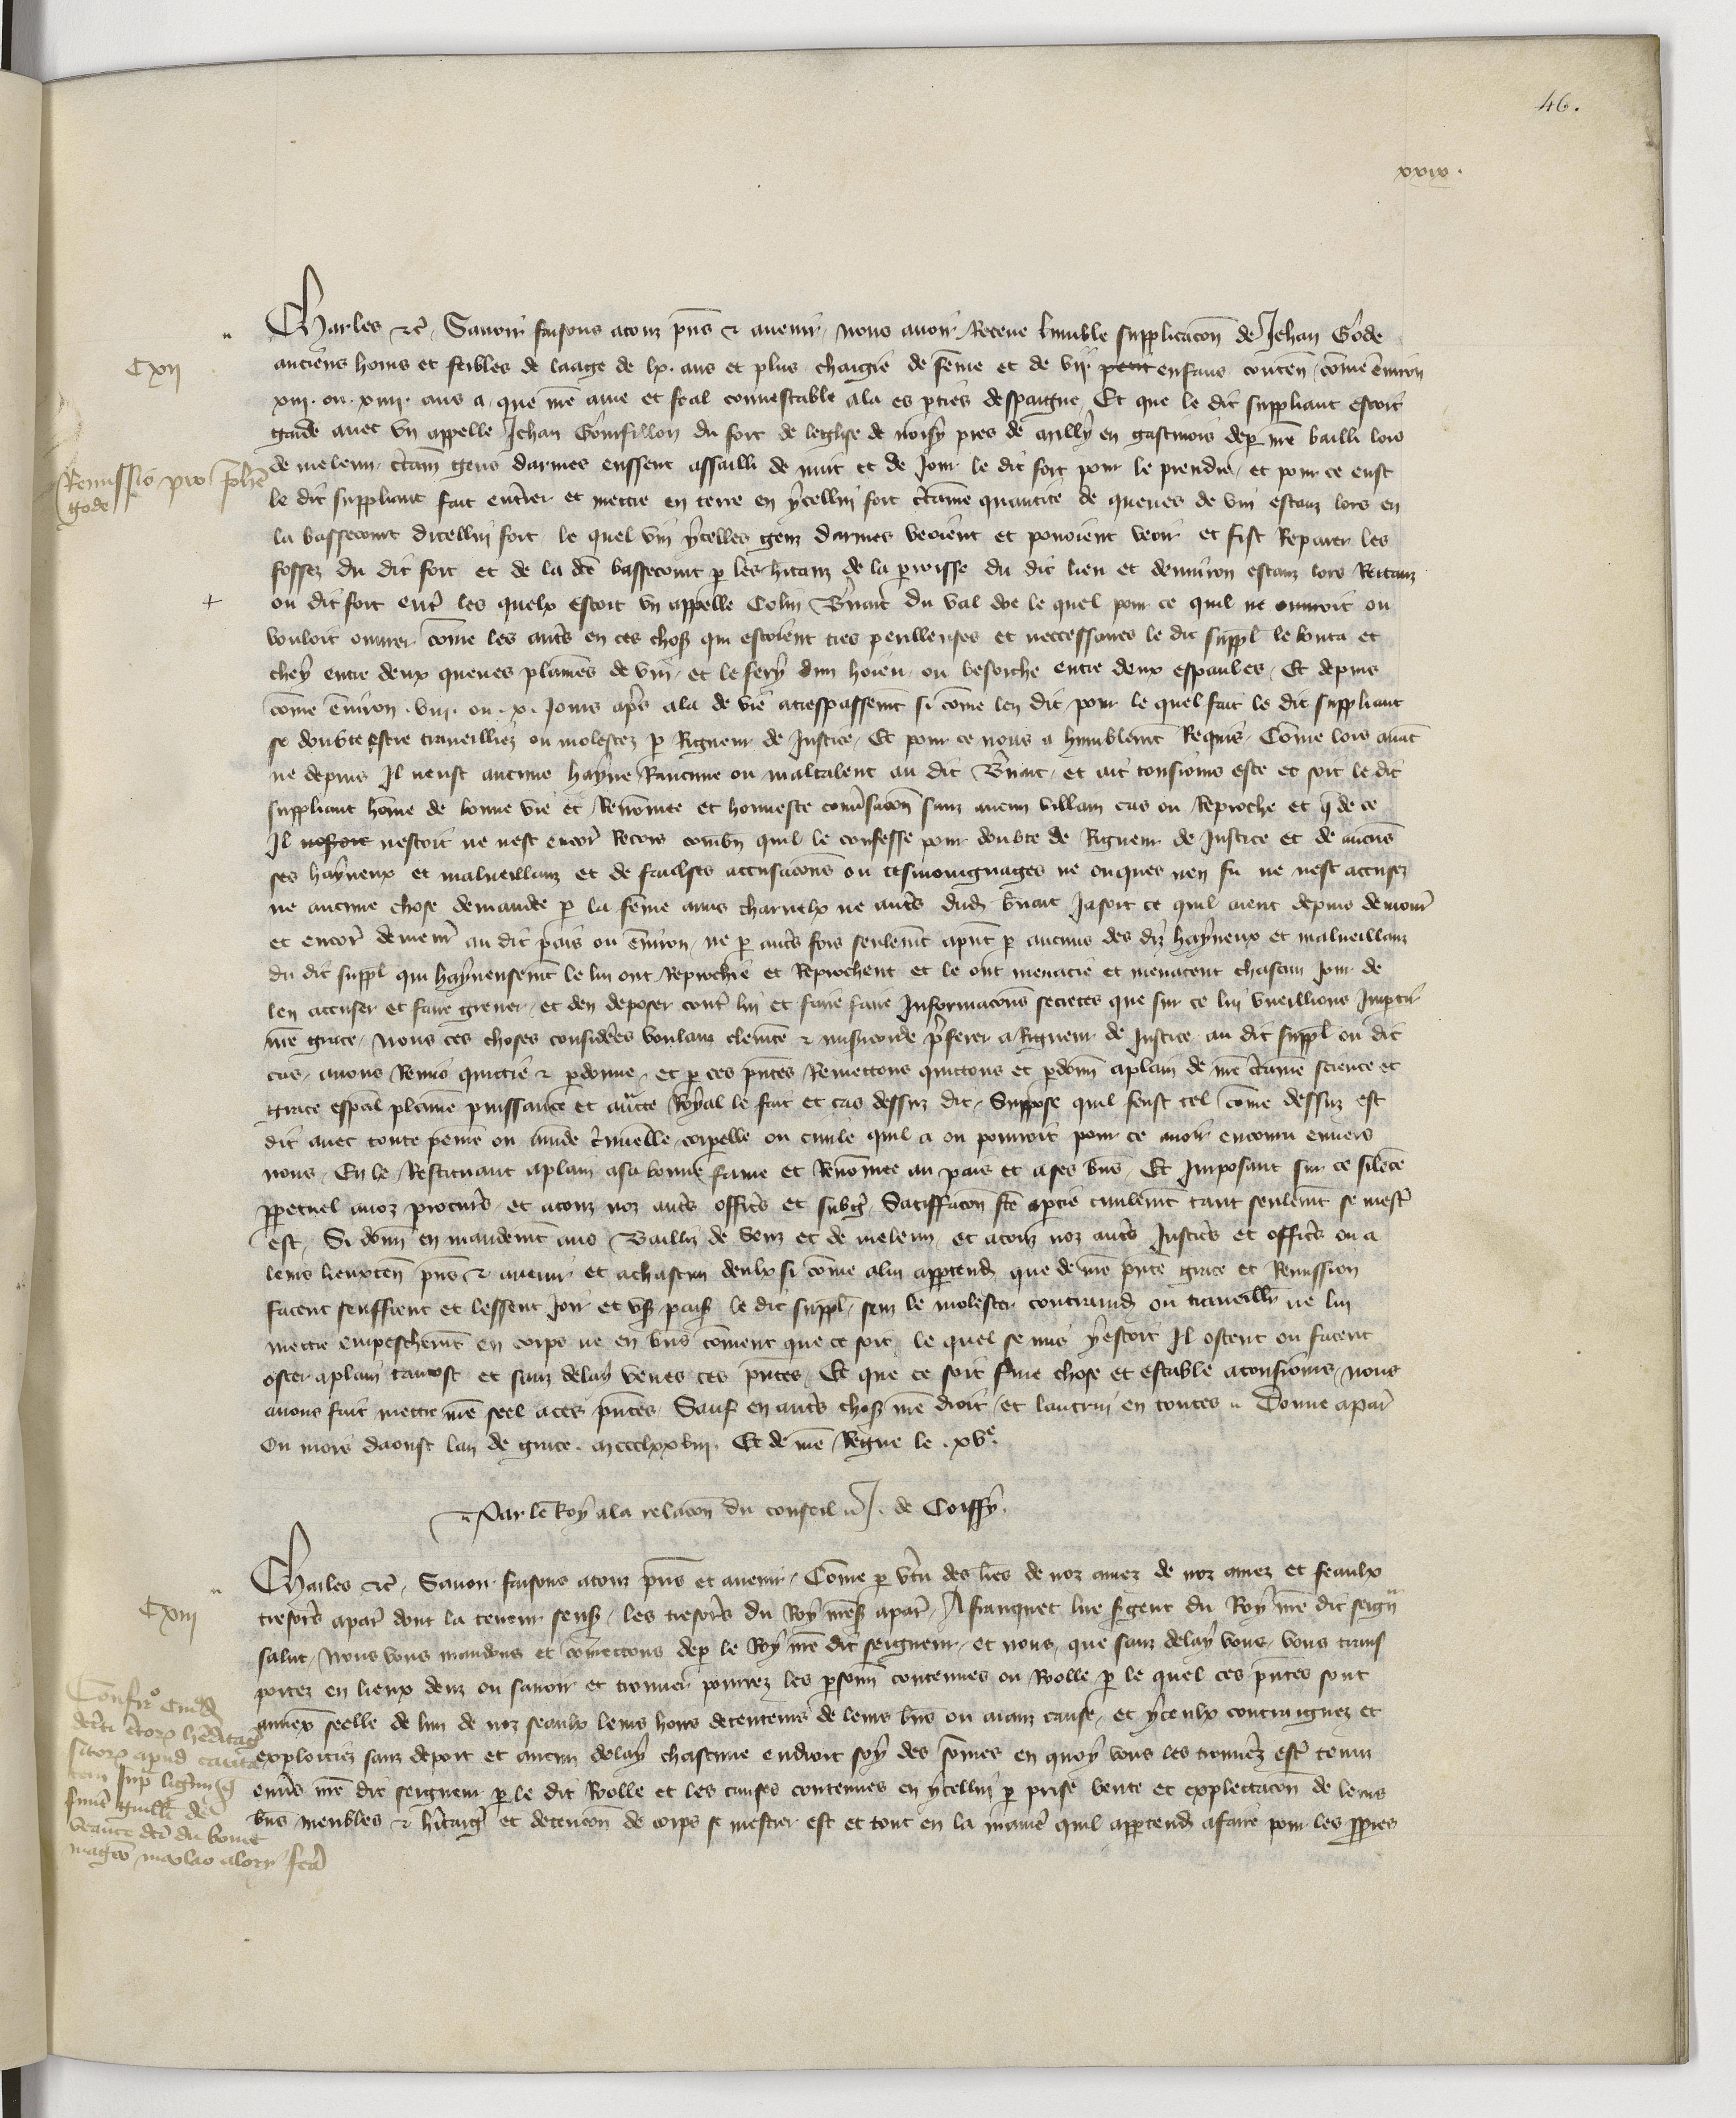 46.
xxix.
Charles etc. Savoir faisons a touz pns et avenir, nous avoir receue lumble supplicacon de Jehan Gode
CXII
anciens homs et feibles de laage de lx. ans et plus chargie de feme et de vij. petit enfans conten come environ
xiij. ou xiiij. ans a que nre ame et feal connestable ala es pties despaigne, Et que le dit suppliant estoit
garde avec un appelle Jehan Gonfillon du fort de leglise de noisy pres de milly en gastinois dep nre bailli lors
Remissio pro Johe gode
de meleun, ctain gens darmes eussent assailli de nuit et de jour le dit fort pour le prendre, et pour ce eust
le dit suppliant fait entrer et mettre en terre en ycellui fort ctaine quantite de queues de vin estanz lors en
la bassecourt dicellui fort le quel vin ycelles genz darmes veoient et povoient veoir et fist reparer les
fossez du dit fort et de la dce bassecourt p les hitanz de la parroisse du dit lieu et denviron estanz lors retraiz
ou dit fort entre les quelx estoit un appelle Colin Bnart du val doe le quel pour ce quil ne ouvroit ou
vouloit ouvrer come les autres en ces choses qui estoient tres perilleuses et neccessaires le dit suppl le bouta et
chey entre deux queues plaines de vin, et le fery dun hoieu ou besoche entre deux espaules, Et depuis
come environ viij. ou x. jours aps ala de vie a trespassemt si come len dit, pour le quel fait le dit suppliant
se doubte estre traveilliez ou molestez p rigueur de justice, Et pour ce nous a humblemt requis, Come lors avat
ne depuis il neust aucune hayne rancune ou maltalent au dit Bnart, et ait tousjours este et soit le dit
suppliant home de bonne vie et renomee et honneste conversacon sanz aucun villain cas ou reproche et q de ce
Il nestoit ne nest encor recors combn quil le confesse pour doubte de rigueur de justice et de aucuns
ses hayneux et malveillanz et de faulses accusacons ou tesmoingnages ne onques nen fu ne nest accusez
ne aucune chose demandee p la feme amis charnelx ne autres dud bnart jasoit ce quil aient depuis demoure
et encor demeuret au dit pais ou environ, ne p autres fors seulemt apnt p aucuns des diz hayneux et malveillanz
du dit suppl qui hayneusemt le lui ont reprochie et reprochent et le ont menacie et menacent chascun jour de
len accuser et faire grever, et den deposer contre lui et faire faire informacons secretes que sur ce lui vueillions impartir
nre grace, Nous ces choses considerees voulanz clemence et misericorde pferer a rigueur de justice au dit suppl ou dit
cas, avons remis quittie et pdonne, et p ces pntes remettons quittons et pdonn a plain de nre ctaine science et
grace especal plaine puissance et auctte royal le fait et cas dessuz dit, Suppose quil feust tel come dessuz est
dit avec toute peine ou amde criminelle corpelle ou civile quil a ou pourroit pour ce avoir encouru envers
nous, En le restituant a plain a sa bonne fame et renomee au pais et a ses bns, Et imposant sur ce silence
ppetuel a noz procurs et a touz noz autres offices et subgez, Satisfacon fce a ptie civilemt tant seulemt se mestr
est, Si donn en mandemt aus Bailliz de Senz et de meleun et a touz noz autres justices et offices ou a
leurs lieuxten pns et avenir et a chascun deulx si come a lui apptendra que de nre pnte grace et remission
facent seuffrent et lessent joir et user paisiblemt le dit suppl sanz le molester contraindre ou traveillier ne lui
mettre empeschemt en corps ne en bns coment que ce soit, le quel se mis y estoit il ostent ou facent
oster a plain tantost et sanz delay veues ces pntes, Et que ce soit ferme chose et estable a tousjours, nous
avons fait mettre nre seel a ces pntes, Sauf en autres choses nre droit et lautrui en toutes. Donne a par
Ou mois daoust lan de grace mccclxxviij. Et de nre regne le xve.
Par le Roy a la relacon du conseil J. de Coiffy.
Charles etc. Savoir faisons a touz pns et avenir, Come p vtu des lres de noz amez de noz amez et feaulx
CXIII
tresors a par dont la teneur sensuit, les tresors du Roy nres a par, A franquet lue sgent du Roy nre dit seign
salut, Nous vous mandons et comettons dep le Roy nre dit seigneur et nous, que sanz delay vous vous trans
portez en lieux deuz ou savoir et trouver pourrez les psonn contenues ou Rolle p le quel ces pntes sont
Confir cuiusdam decreti certorum hereditag sitor apud
annexe seelle de lun de noz seaulx leurs hoirs detenteurs de leurs bns ou aianz cause, et yceulx contraignez et
exploitiez sanz deport et aucun delay chascune endroit soy des somes en quoy vous les trouverez estre tenuz
envers nre dit seigneur p le dit Rolle et les causes contenues en ycellui p prise vente et explettacon de leurs
bns meubles et hitaiges et detencon de corps se mestier est et tout en la maniere quil apptendra a faire pour les ppres